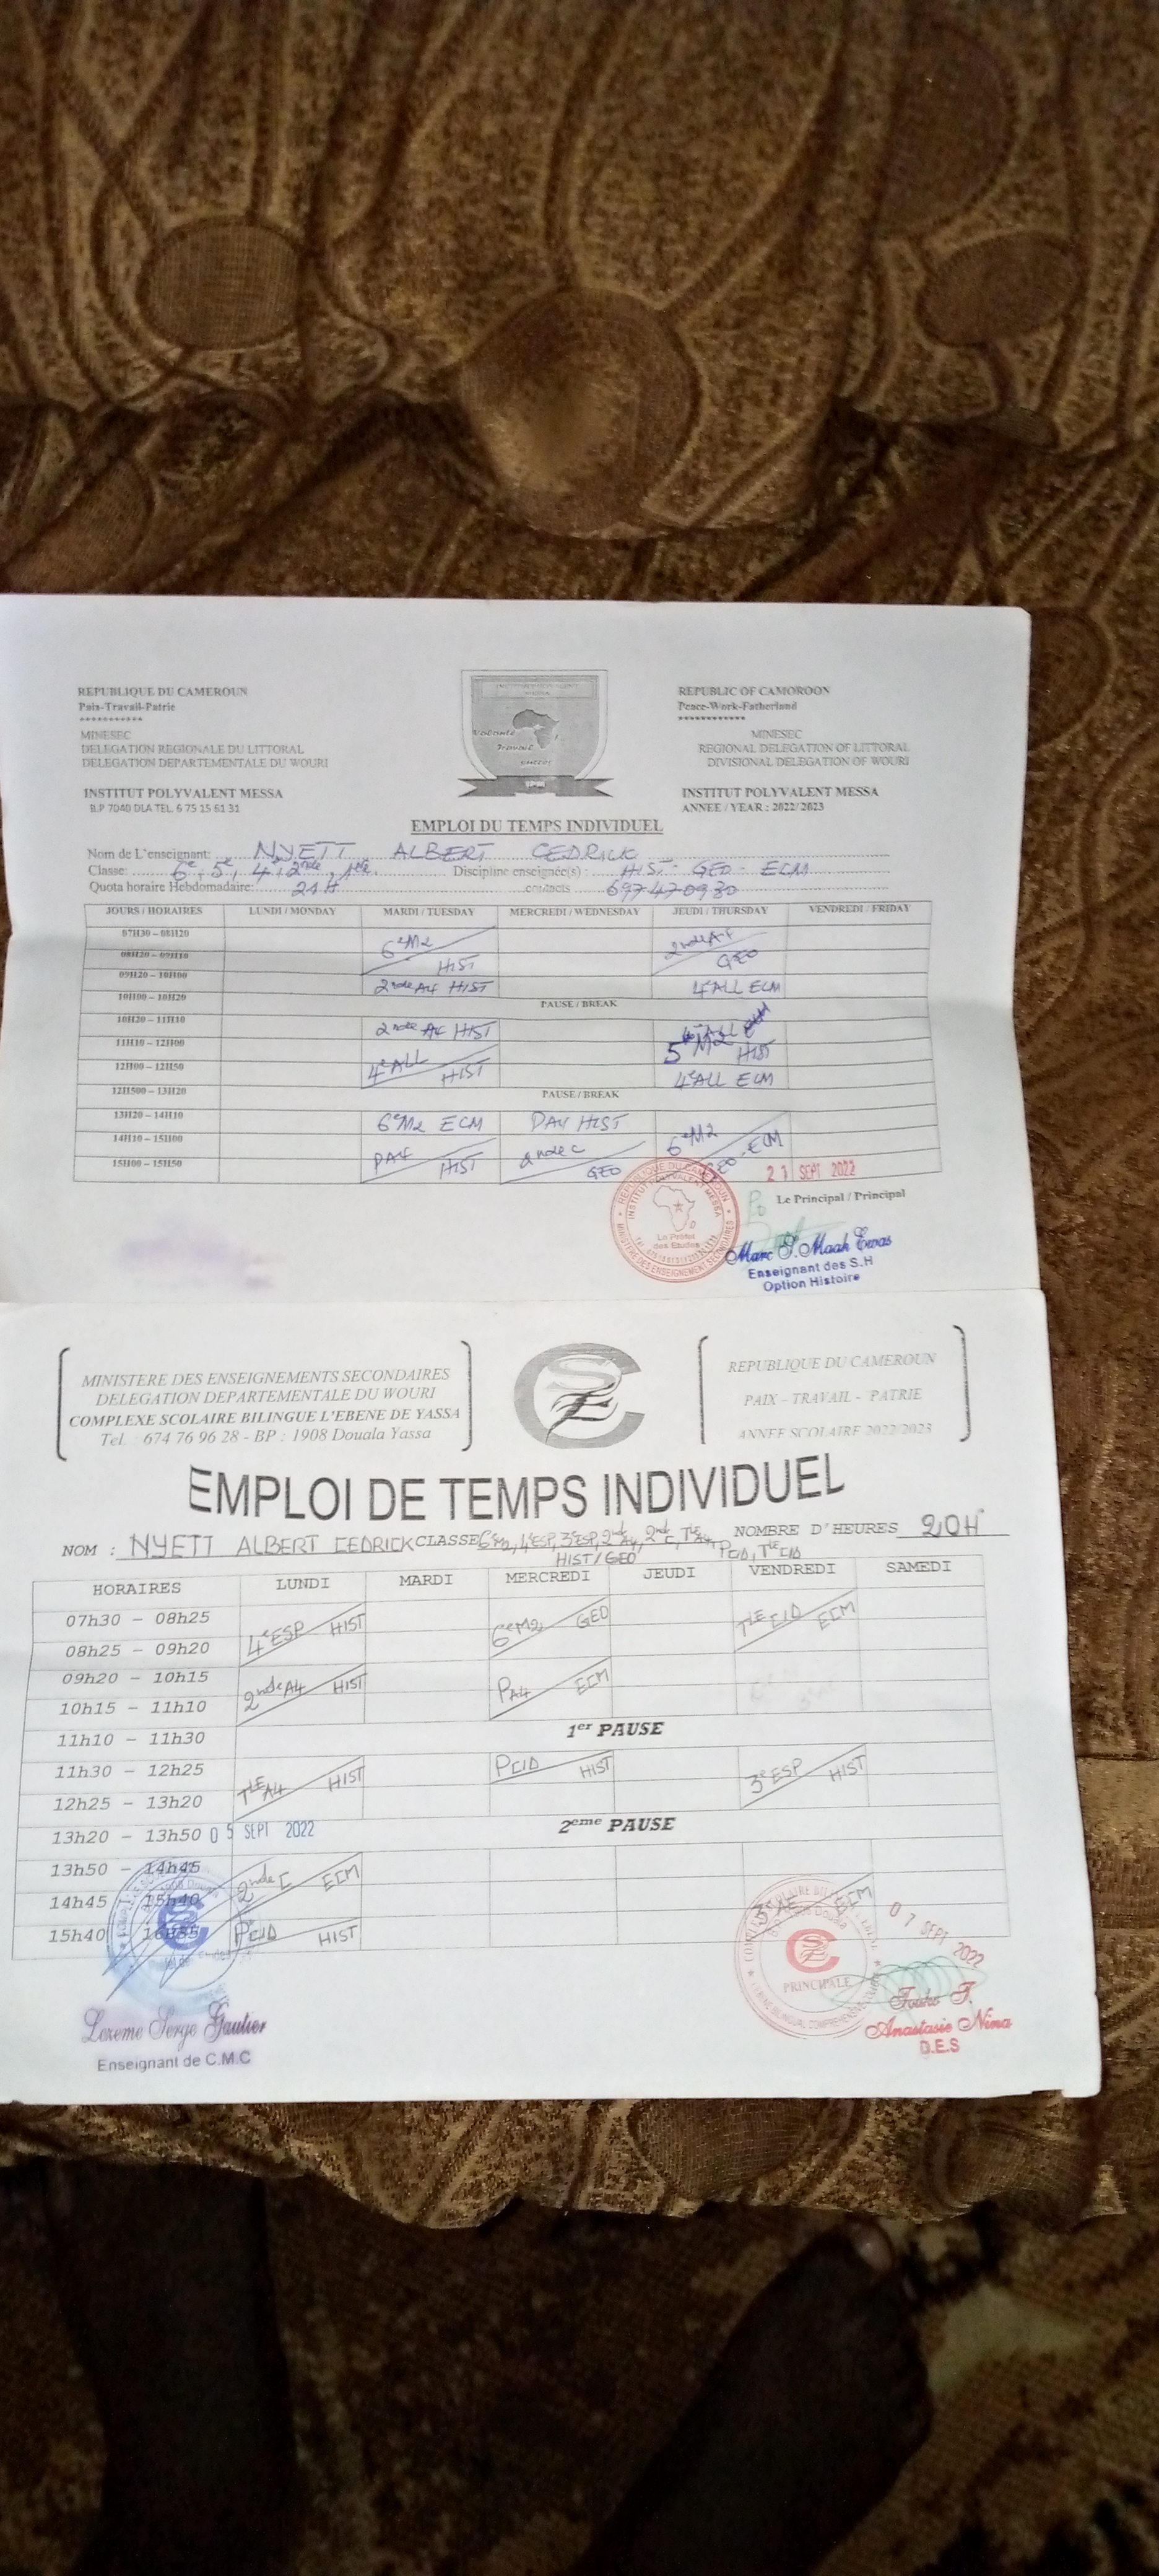 REPUBLIQUE DU CAMEROUN
Paix-Travail-Patrie
***********
MINESEC
DELEGATION REGIONALE DU LITTORAL
DELEGATION DEPARTEMENTALE DU WOURI
INSTITUT POLYVALENT MESSA
B.P 7040 DLA TEL. 6 75 15 61 31
Travail
REPUBLIC OF CAMOROON
Peace-Work-Fatherland
************
MINESEC
REGIONAL DELEGATION OF LITTORAL
DIVISIONAL DELEGATION OF WOURI
INSTITUT POLYVALENT MESSA
ANNEE / YEAR : 2022/2023
EMPLOI DU TEMPS INDIVIDUEL
Nom de L'enseignant: NYETT ALBERT CEDRICK
Classe: 6e, 5e, 4e, 2nde, 1ère. Discipline enseignée(s) : HIST- GEO - ECM
Quota horaire Hebdomadaire: 21H contacts 697470930
JOURS / HORAIRES LUNDI / MONDAY MARDI / TUESDAY MERCREDI / WEDNESDAY JEUDI / THURSDAY VENDREDI / FRIDAY
07H30 – 08H20
08H20 – 09H10 6eM2 HIST 2nde A4 GEO
09H20 – 10H00 2nde A4 HIST 4eALL ECM
10H00 – 10H20 PAUSE / BREAK
10H20 – 11H10 2nde A4 HIST
11H10 – 12H00 4eALL HIST 5eM2 HIST
12H00 – 12H50 4eALL ECM
12H500 – 13H20 PAUSE / BREAK
13H20 – 14H10 6eM2 ECM PA4 HIST
14H10 – 15H00 PA4 HIST 2nde C GEO 6eM2 GEO-ECM
15H00 – 15H50
21 SEPT 2022
Le Principal / Principal
Po
REPUBLIQUE DU CAMEROUN
INSTITUT POLYVALENT MESSA
Le Préfet
des Etudes
Marc S. Maah Ewas
Enseignant des S.H
Option Histoire
MINISTERE DES ENSEIGNEMENTS SECONDAIRES
DELEGATION DEPARTEMENTALE DU WOURI
COMPLEXE SCOLAIRE BILINGUE L'EBENE DE YASSA
Tel. : 674 76 96 28 - BP : 1908 Douala Yassa
REPUBLIQUE DU CAMEROUN
PAIX - TRAVAIL - PATRIE
ANNEE SCOLAIRE 2022/2023
EMPLOI DE TEMPS INDIVIDUEL
NOM : NYETT ALBERT CEDRICK CLASSE 6eM2, 4eESP, 3eESP, 2ndeA4, 2ndeC, TleA4, PC/D, TleC/D NOMBRE D'HEURES 20H
HIST/GEO
HORAIRES LUNDI MARDI MERCREDI JEUDI VENDREDI SAMEDI
07h30 – 08h25 4eESP HIST 6eM2 GEO TLE C/D ECM
08h25 – 09h20
09h20 – 10h15 2nde A4 HIST PA4 ECM
10h15 – 11h10
11h10 – 11h30 1er PAUSE
11h30 – 12h25 TLE A4 HIST PC/D HIST 3eESP HIST
12h25 – 13h20
13h20 – 13h50 05 SEPT 2022 2eme PAUSE
13h50 – 14h45 2nde C ECM
14h45 – 15h40 ECM
15h40 – 16h35 PC/D HIST
07 SEPT 2022
PRINCIPALE
Lexeme Serge Gautier
Enseignant de C.M.C
Anastasie Nina
D.E.S